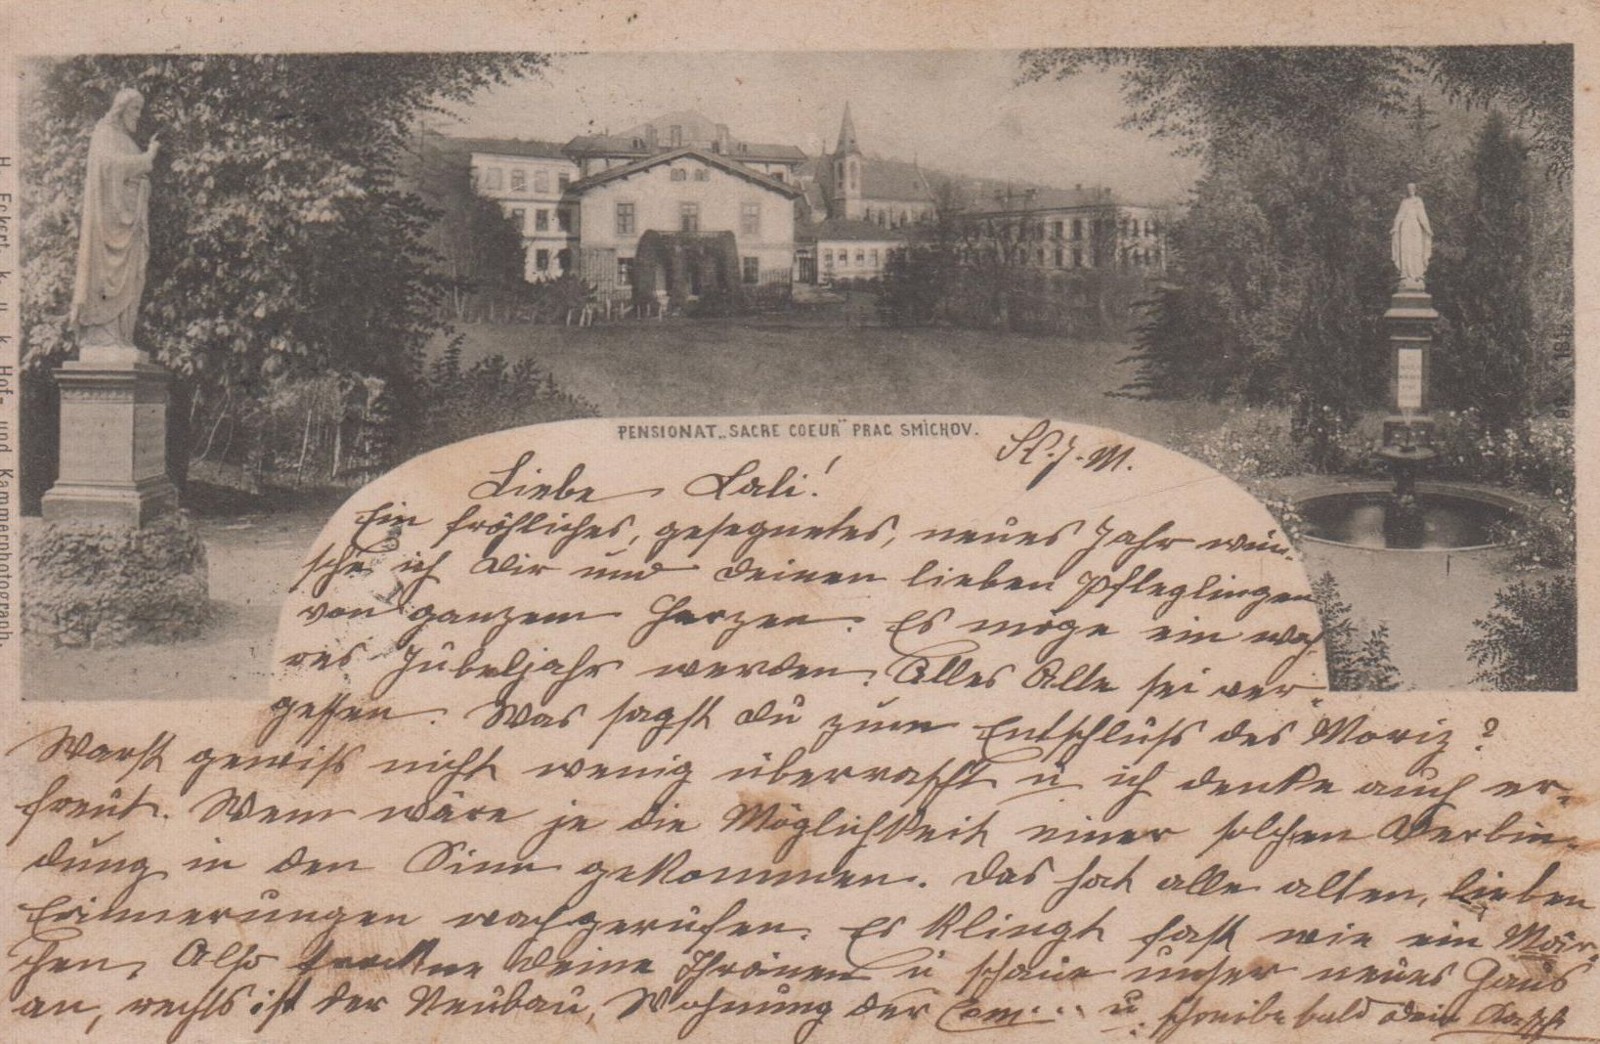 PENSIONAT „SACRE COEUR" PRAG SMICHOV.
H. Eckert, k. u. k. Hof- und Kammerphotograph.
S. J. M.
Liebe Lali!
Ein fröhliches, gesegnetes, neues Jahr wün-
sche ich Dir und deinen lieben Pfleglingen
von ganzem Herzen. Es möge ein wah-
res Jubeljahr werden. Alles Alte sei ver-
gessen. Was sagst du zum Entschluß des Moriz?
Warst gewiß nicht wenig überrascht u ich denke auch er-
freut. Wem wäre je die Möglichkeit einer solchen Verbin-
dung in den Sinn gekommen. Das hat alle alten, lieben
Erinnerungen wachgerufen. Es klingt fast wie ein Mär-
chen. Also trockne deine Thränen u schaue unser neues Haus
an, rechts ist der Neubau, Wohnung der u. schreibe bald